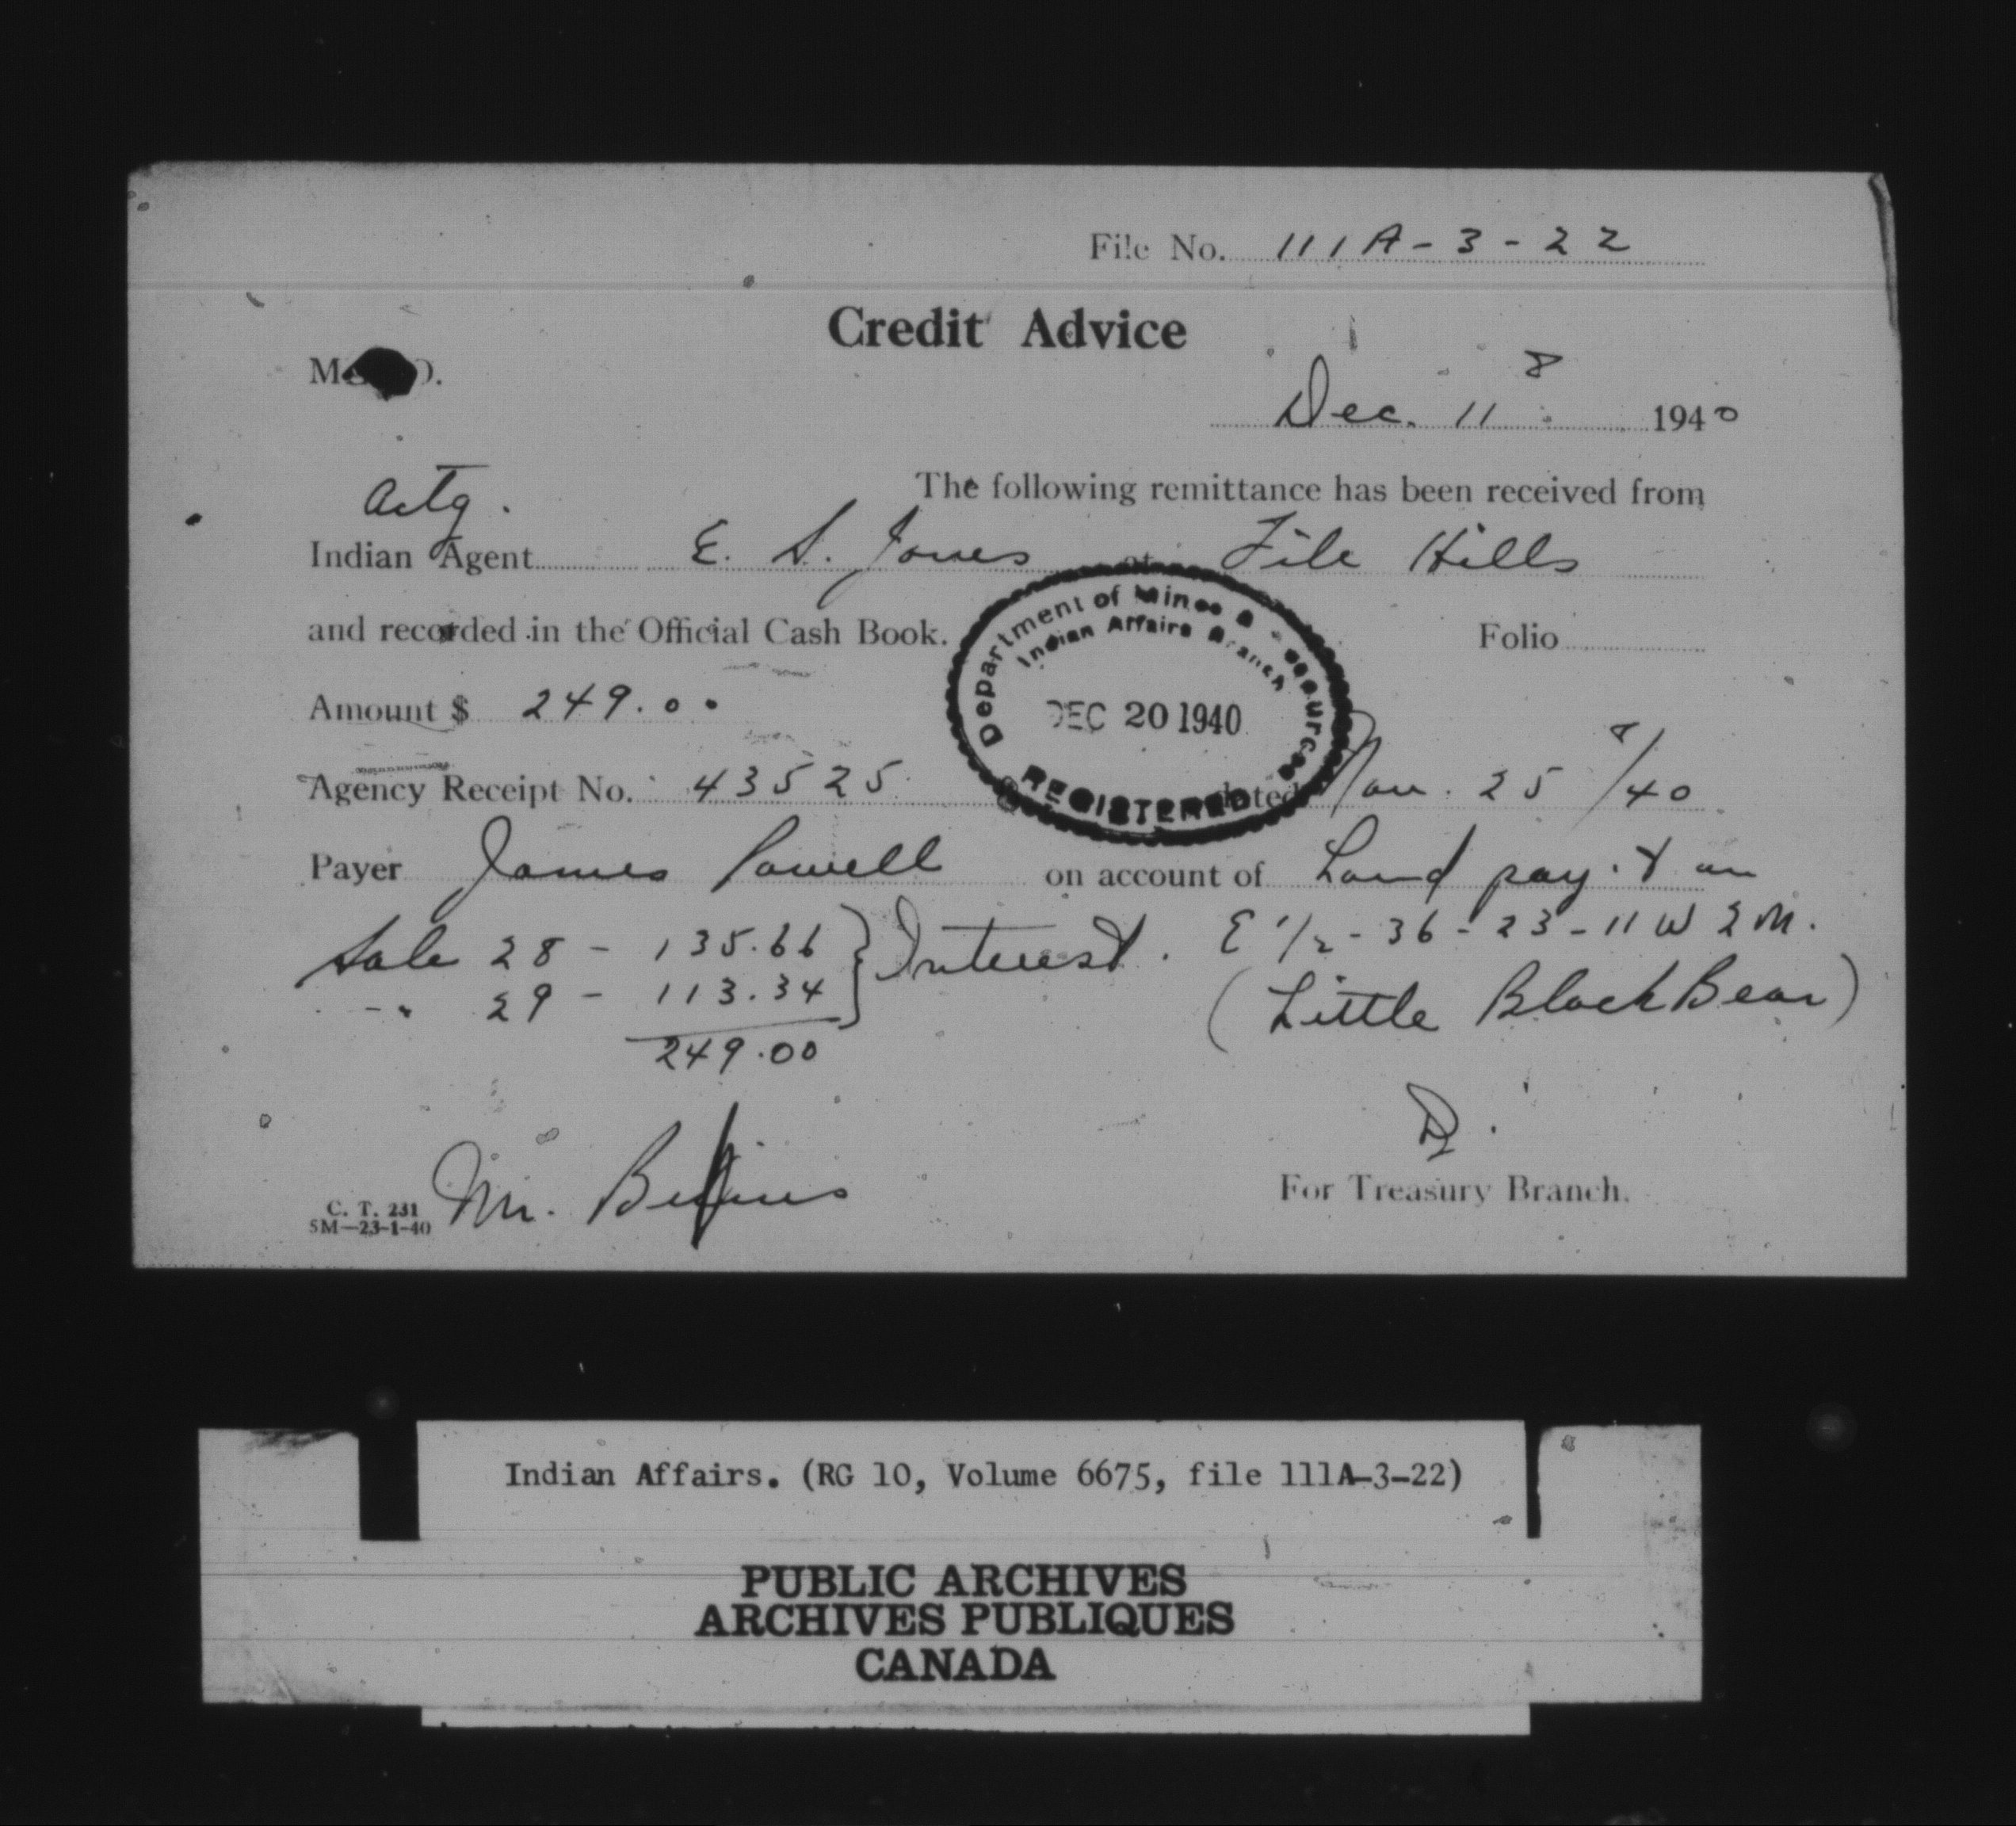 File No. 111A-3-22
Credit Advice
8
Dec. 11 1940
Actg.
The following remittance has been received from
Indian Agent E. S. Jones at File Hills
and recorded in the Official Cash Book. Folio
Department of Mines & Resources
Indian Affairs Branch
DEC 20 1940
REGISTERED
Amount $ 249.00
Agency Receipt No. 43525 dated Nov. 25/40
Payer James Powell on account of Land pay.t on
Sale 28 - 135.66 } Interest. E 1/2 - 36 - 23 - 11 W 2 M.
" 29 - 113.34
(Little Black Bear)
249.00
Mr.
For Treasury Branch.
C. T. 231
5M—23-1-40
Indian Affairs. (RG 10, Volume 6675, file 111A-3-22)
PUBLIC ARCHIVES
ARCHIVES PUBLIQUES
CANADA